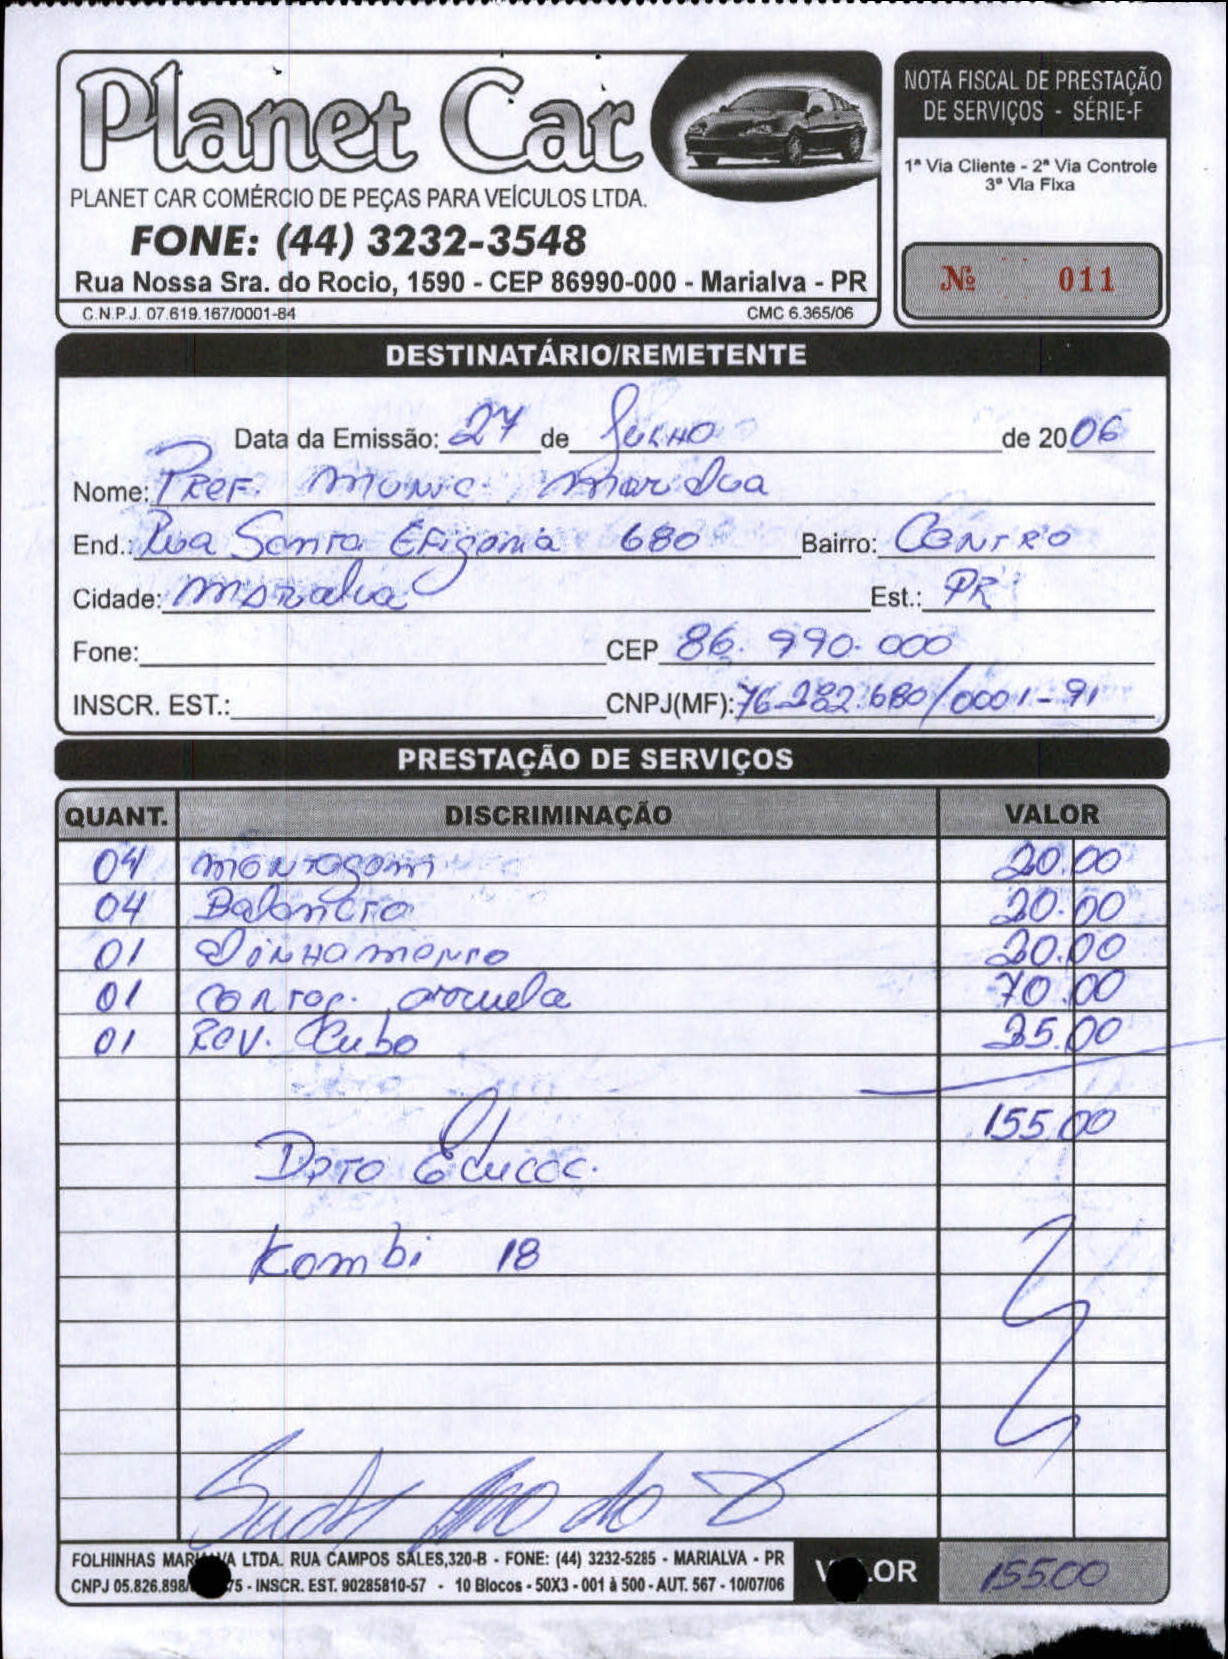 Planet Car
PLANET CAR COMÉRCIO DE PEÇAS PARA VEÍCULOS LTDA.
FONE: (44) 3232-3548
Rua Nossa Sra. do Rocio, 1590 - CEP 86990-000 - Marialva - PR
C.N.P.J. 07.619.167/0001-84 CMC 6.365/06
NOTA FISCAL DE PRESTAÇÃO
DE SERVIÇOS - SÉRIE-F
1ª Via Cliente - 2ª Via Controle
3ª Via Fixa
Nº 011
DESTINATÁRIO/REMETENTE
Data da Emissão: 27 de Julho de 2006
Nome: Pref. Munic. Marialva
End.: Rua Santa Efigenia 680 Bairro: Centro
Cidade: Marialva Est.: PR
Fone: CEP 86.990.000
INSCR. EST.: CNPJ(MF): 76.282.680/0001-91
PRESTAÇÃO DE SERVIÇOS
QUANT. DISCRIMINAÇÃO VALOR
04 montagem 20.00
04 Balanceto 20.00
01 Alinhamento 20.00
01 70.00
01 Rev. Cubo 25.00
155.00
Dpto Educac.
Kombi 18
FOLHINHAS LTDA. RUA CAMPOS SALES,320-B - FONE: (44) 3232-5285 - MARIALVA - PR
CNPJ 05.826.898/ 75 - INSCR. EST. 90285810-57 - 10 Blocos - 50X3 - 001 à 500 - AUT. 567 - 10/07/06
VALOR 155.00